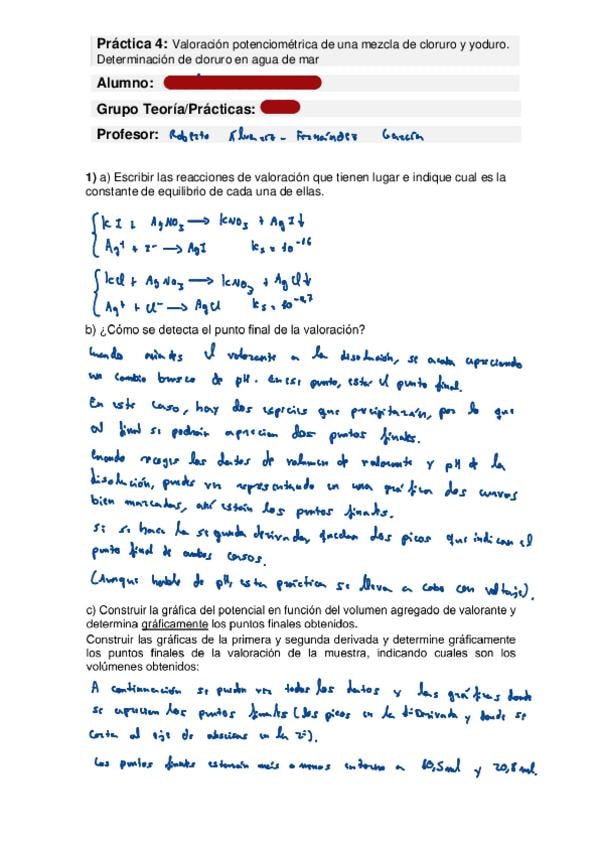 Práctica 4: Valoración potenciométrica de una mezcla de cloruro y yoduro.
Determinación de cloruro en agua de mar
Alumno:
Grupo Teoría/Prácticas:
Profesor: Roberto Álvarez - Fernández García
1) a) Escribir las reacciones de valoración que tienen lugar e indique cual es la
constante de equilibrio de cada una de ellas.
KI + AgNO₃ → KNO₃ + AgI↓
Ag⁺ + I⁻ → AgI Ks = 10⁻¹⁶
KCl + AgNO₃ → KNO₃ + AgCl↓
Ag⁺ + Cl⁻ → AgCl Ks = 10⁻⁹,⁷
b) ¿Cómo se detecta el punto final de la valoración?
Cuando añades el valorante a la disolución, se acaba apreciando
un cambio brusco de pH. En ese punto, estar el punto final.
En este caso, hay dos especies que precipitarán, por lo que
al final se podrán aprecian dos puntos finales.
Cuando recoges los datos de volumen de valorante y pH de la
disolución, puedes ver representando en una gráfica dos curvas
bien marcadas, ahí están los puntos finales.
Si se hace la segunda derivada, quedan dos picos que indican el
punto final de ambos casos.
(Aunque hable de pH, esta práctica se lleva a cabo con voltaje).
c) Construir la gráfica del potencial en función del volumen agregado de valorante y
determina gráficamente los puntos finales obtenidos.
Construir las gráficas de la primera y segunda derivada y determine gráficamente
los puntos finales de la valoración de la muestra, indicando cuales son los
volúmenes obtenidos:
A continuación se pueden ver todos los datos y las gráficas donde
se aprecian los puntos finales (los picos en la 1ª Derivada y donde se
corta al eje de abscisas en la 2ª).
Los puntos finales estarían más o menos entorno a 10,5ml y 20,8ml.